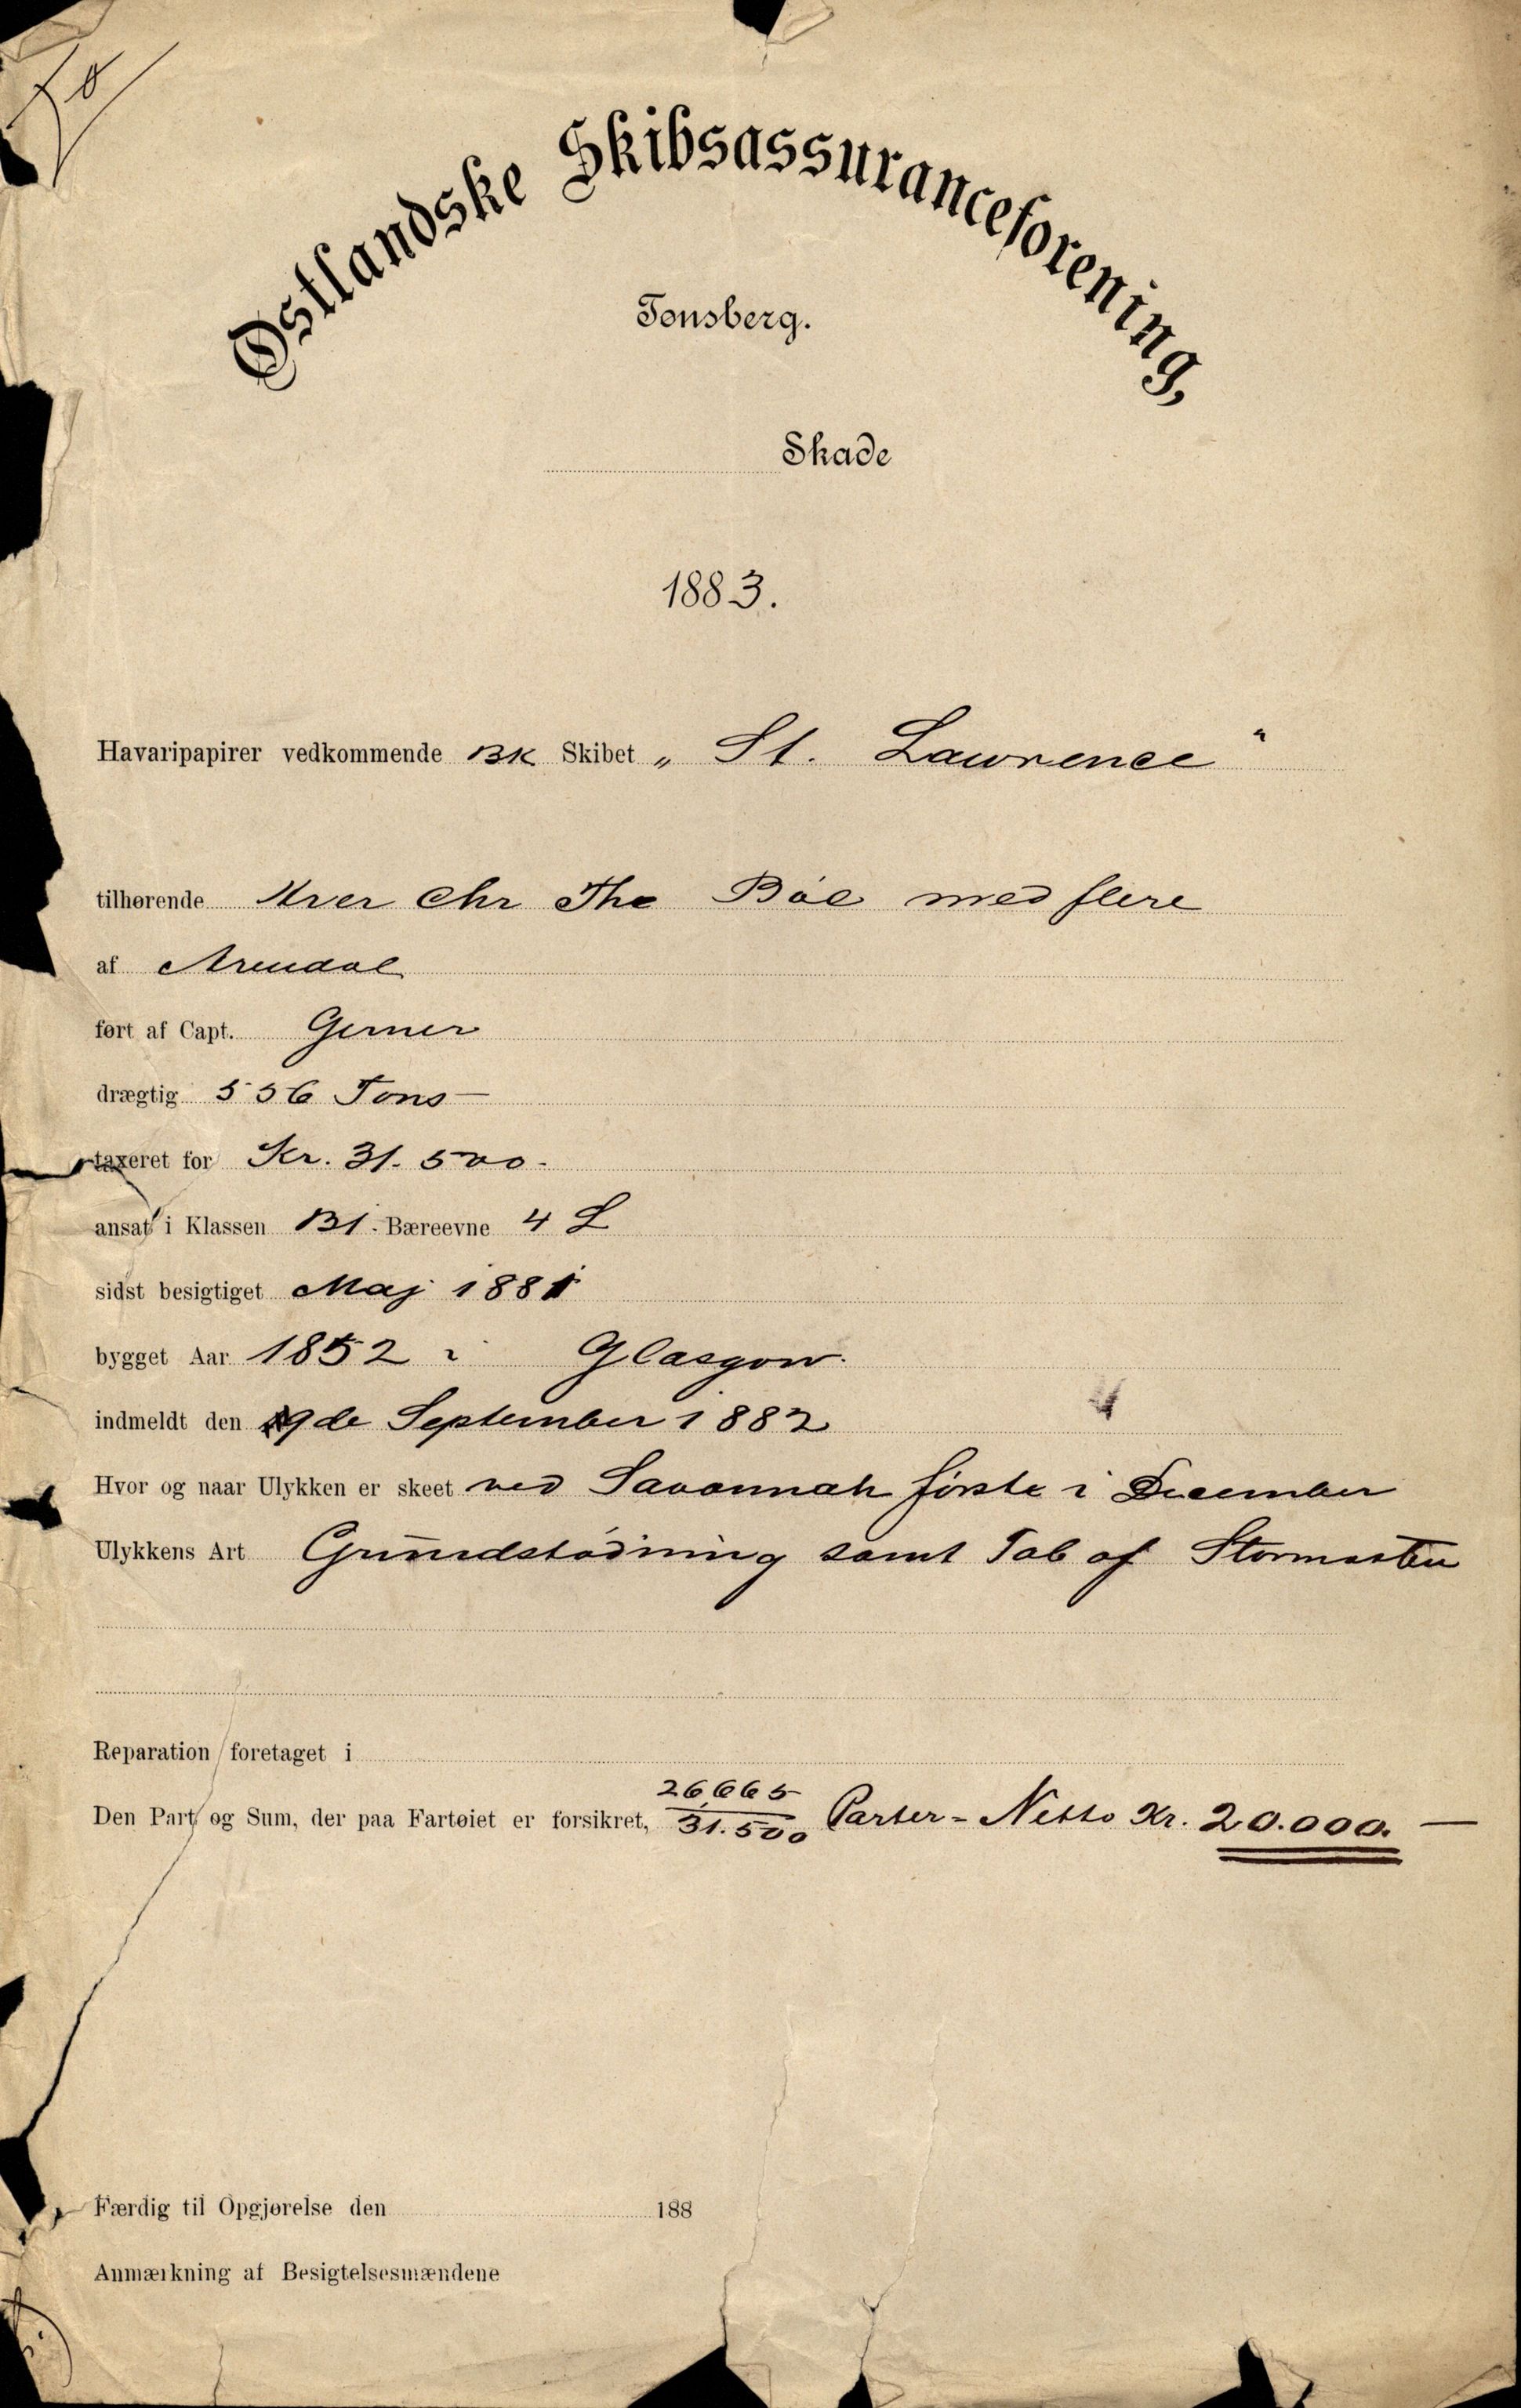 Østlandske Skibsassuranceforening,
Tønsberg.
Skade
1883.
Havaripapirer vedkommende BK Skibet „ St. Lawrence "
tilhørende Hrer Chr Tho Bøe med flere
af Arendal
ført af Capt. Gerner
drægtig 556 Tons —
taxeret for Kr. 31.500.
ansat i Klassen B1. Bæreevne 4 L
sidst besigtiget Maj 1881
bygget Aar 1852 i Glasgow.
indmeldt den 9de September 1882
Hvor og naar Ulykken er skeet ved Savannah første i December
Ulykkens Art Grundstødning samt Tab af Stormasten
Reparation foretaget i
Den Part og Sum, der paa Fartøiet er forsikret, 26,665/31.500 Parter = Netto Kr. 20.000. —
Færdig til Opgjørelse den 188
Anmærkning af Besigtelsesmændene